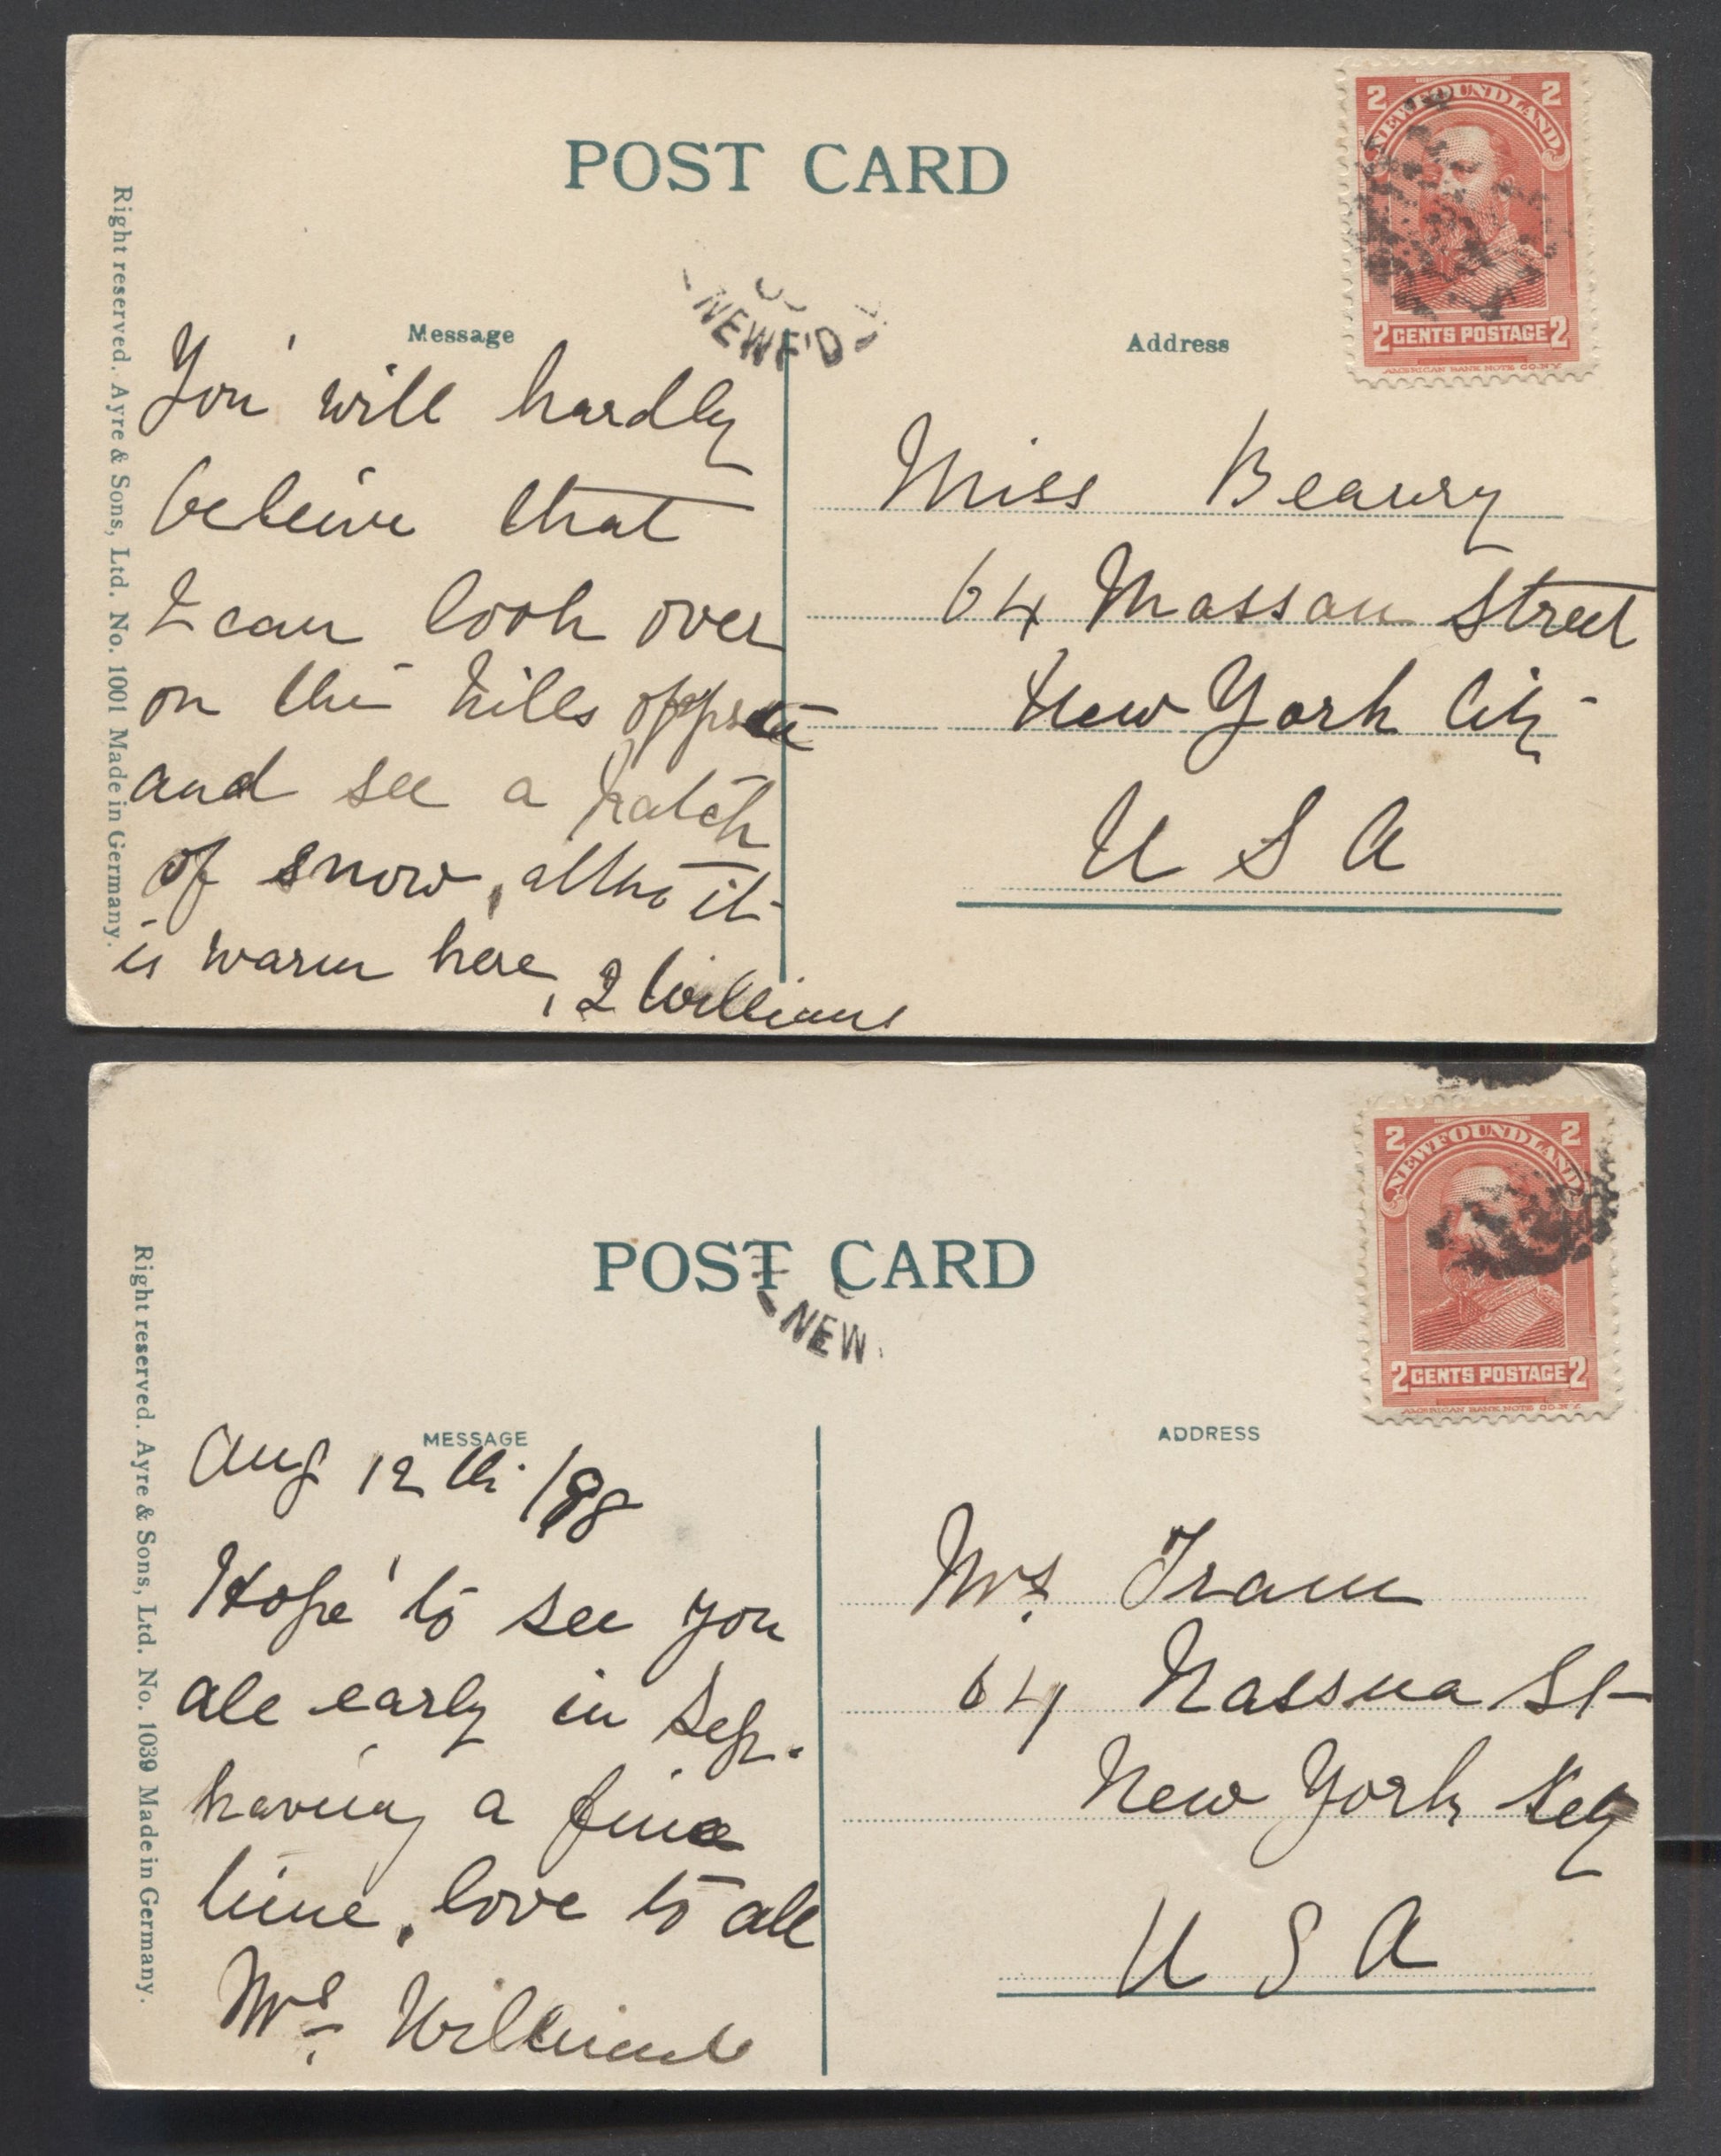 POST CARD
2 NEWFOUNDLAND 2
2 CENTS POSTAGE 2
AMERICAN BANK NOTE CO. N.Y.
NEWF'D
Right reserved. Ayre & Sons, Ltd. No. 1001 Made in Germany.
Message
Address
You will hardly
beleive that
I can look over
on the hills
and see a patch
of snow, altho it
is warm here,
Williams
Miss
64 Street
New York City
U S A
POST CARD
2 NEWFOUNDLAND 2
2 CENTS POSTAGE 2
AMERICAN BANK NOTE CO. N.Y.
NEW
Right reserved. Ayre & Sons, Ltd. No. 1039 Made in Germany.
MESSAGE
ADDRESS
Aug 12th
Hope to see you
all early in Sep.
having a fine
time, love to all
Mrs Williams
Mrs.
64 St
New York
U S A